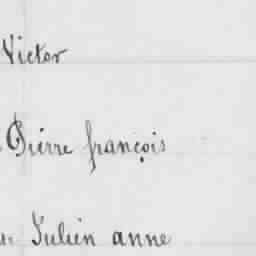 Victor
Pierre françois
Julien anne